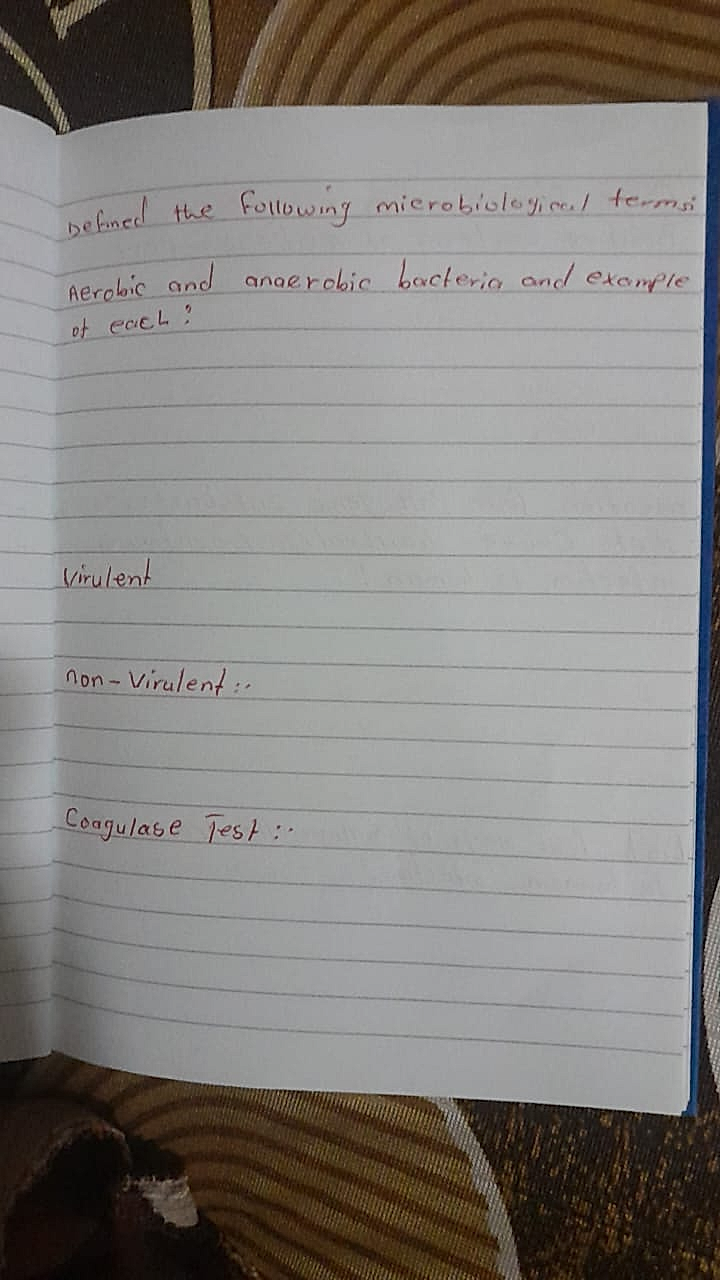 Defined the following microbiological terms:
Aerobic and anaerobic bacteria and example
of each?
Virulent
non-Virulent:.
Coagulase Test:.